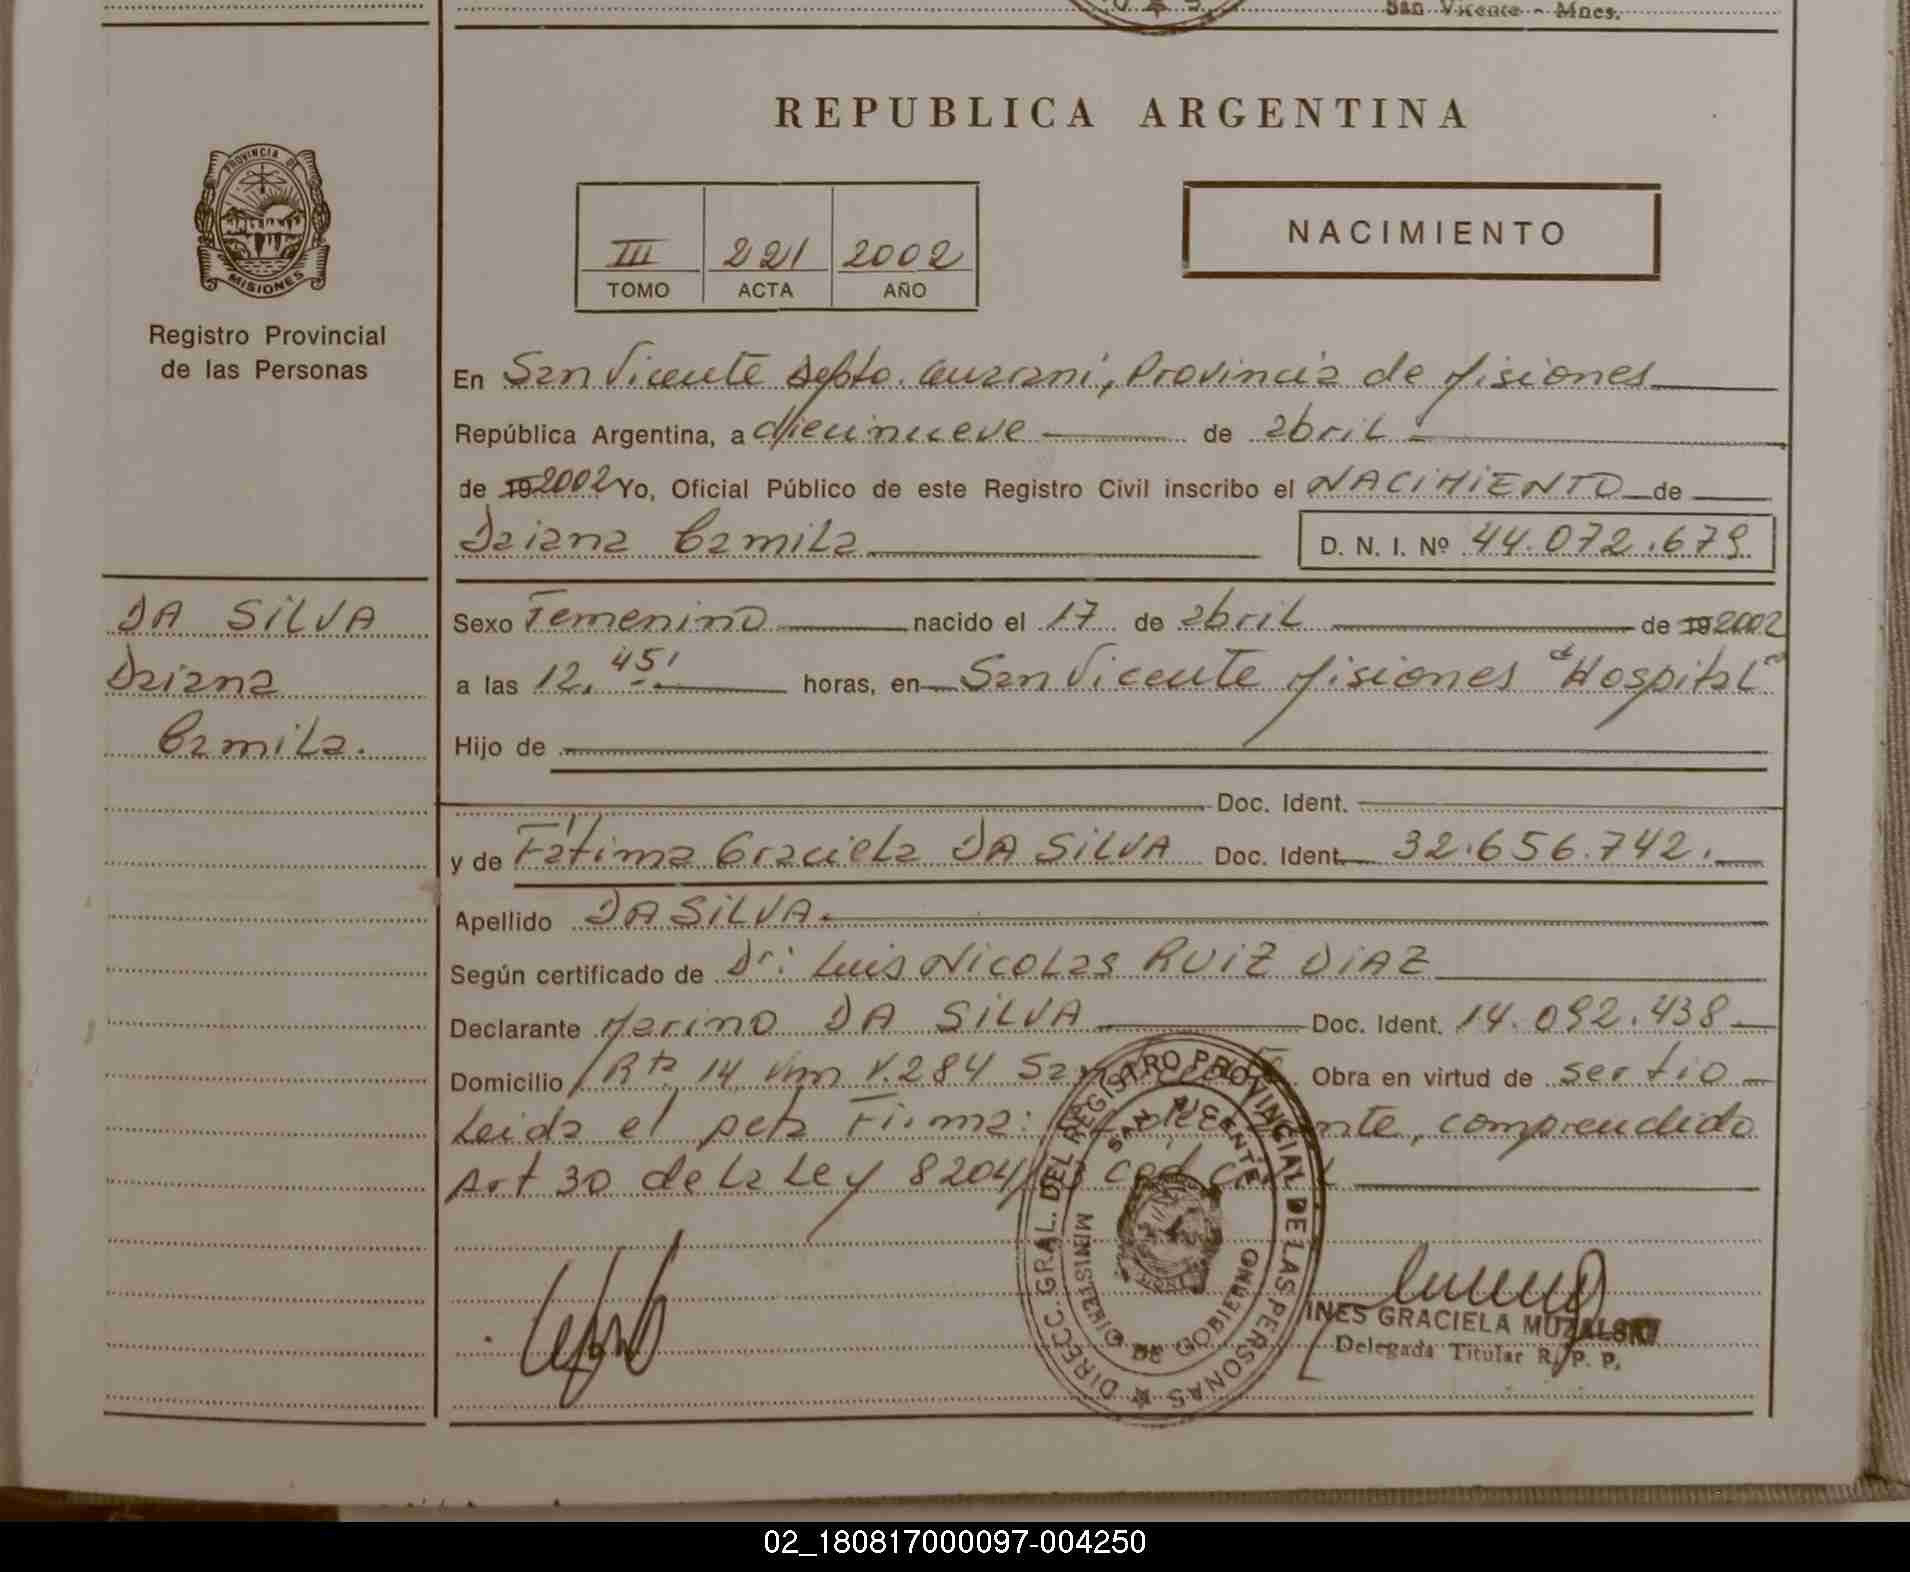 San Vicente - Mnes.
REPUBLICA ARGENTINA
PROVINCIA DE
MISIONES
Registro Provincial
de las Personas
III 221 2002
TOMO ACTA AÑO
NACIMIENTO
En San Vicente Depto. Guarani, Provincia de Misiones
República Argentina, a diecinueve de abril
de 19 2002 Yo, Oficial Público de este Registro Civil inscribo el NACIMIENTO de
Daiana Camila D. N. I. Nº 44.072.679
DA SILVA
Daiana
Camila.
Sexo Femenino nacido el 17 de abril de 19 2002
a las 12,45' horas, en San Vicente Misiones "Hospital"
Hijo de
Doc. Ident.
y de Fátima Graciela DA SILVA Doc. Ident. 32.656.742.
Apellido DA SILVA.
Según certificado de Dr: Luis Nicolas RUIZ DIAZ
Declarante Marino DA SILVA Doc. Ident. 14.092.438
Domicilio Rta 14 Km 1.284 San Obra en virtud de ser tio
Leida el acta Firma: comprendido
Art 30 de la Ley 8204/63
DIRECC. GRAL. DEL REGISTRO PROVINCIAL DE LAS PERSONAS
SAN VICENTE
MINISTERIO DE GOBIERNO
INES GRACIELA MUZALSKI
Delegada Titular R. P. P.
02_180817000097-004250